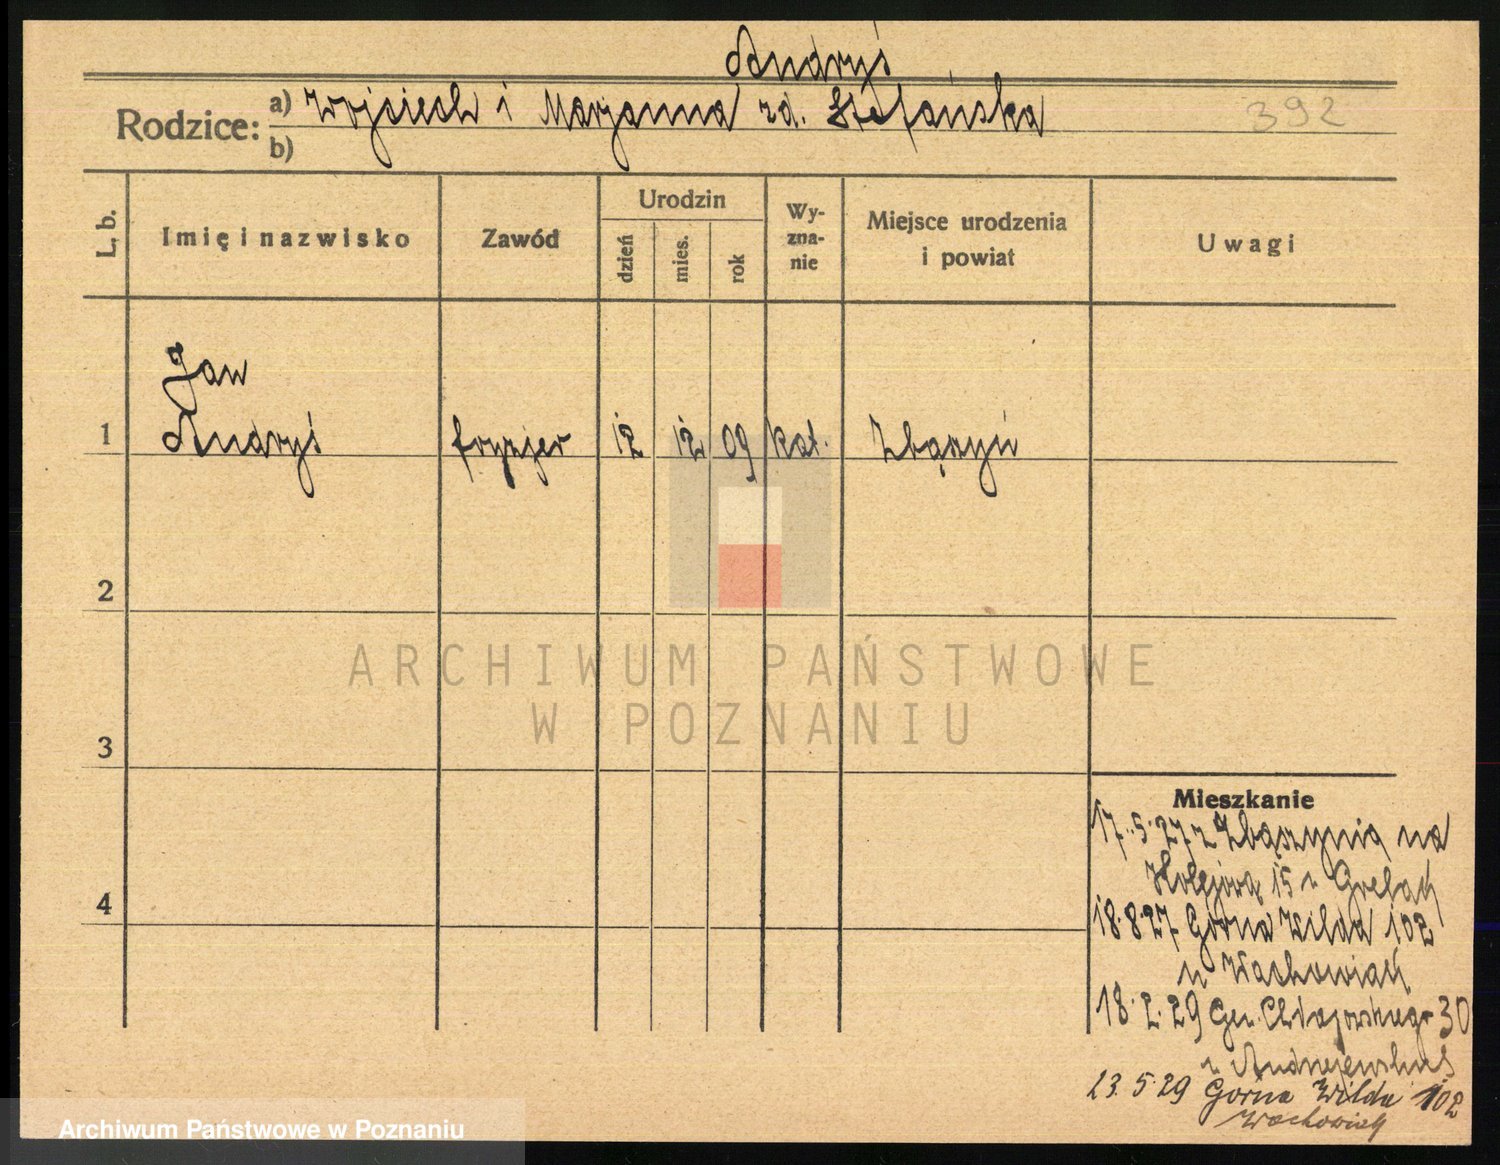 Andryś
Rodzice: a) Wojciech i Marjanna zd. Stefańska
b)
392
L. b.
Imię i nazwisko
Zawód
Urodzin
dzień
mies.
rok
Wy-
zna-
nie
Miejsce urodzenia
i powiat
Uwagi
Jan
1 Andryś fryzjer 12 12 09 kat. Zbąszyń
2
3
4
ARCHIWUM PAŃSTWOWE
W POZNANIU
Mieszkanie
17.5.27 z Zbąszynia na
Kolejową 15 u Grelak
18.8.27 Górna Wilda 102
u Wachowiak
18.2.29 Gen. Chłapowskiego 30
u Andrzejewskiej
23.5.29 Górna Wilda 102
Wachowiak
Archiwum Państwowe w Poznaniu